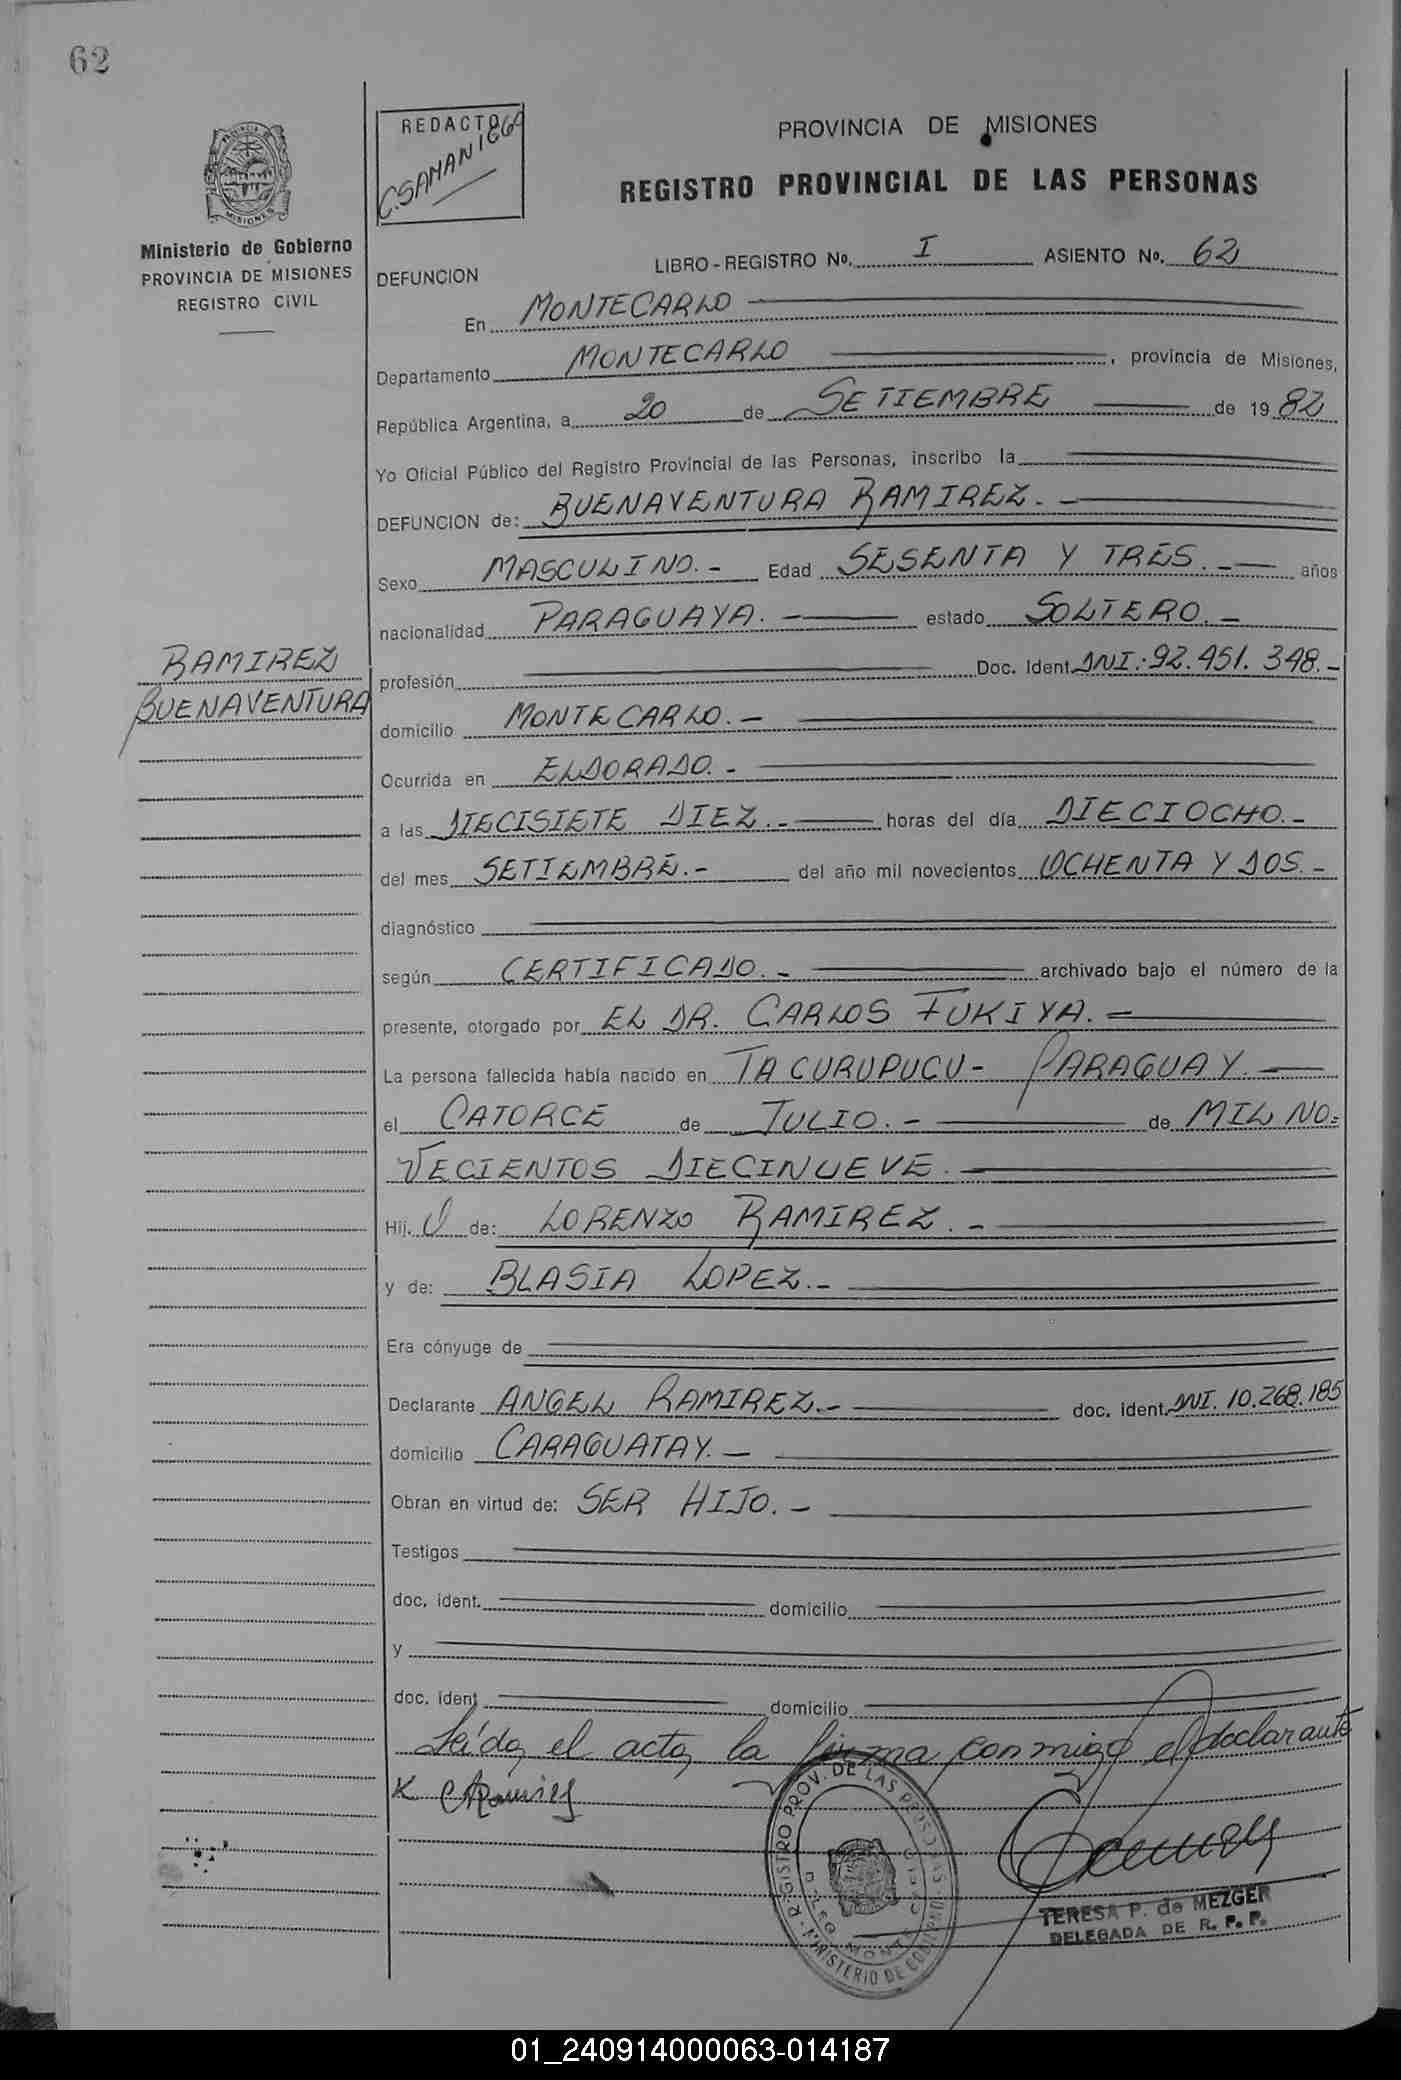 62
REDACTO
PROVINCIA DE MISIONES
REGISTRO PROVINCIAL DE LAS PERSONAS
MISIONES
Ministerio de Gobierno
PROVINCIA DE MISIONES
REGISTRO CIVIL
LIBRO-REGISTRO Nº. I ASIENTO Nº. 62
DEFUNCION
En MONTECARLO
Departamento MONTECARLO, provincia de Misiones,
República Argentina, a 20 de SETIEMBRE de 1982
Yo Oficial Público del Registro Provincial de las Personas, inscribo la
DEFUNCION de: BUENAVENTURA RAMIREZ.-
Sexo MASCULINO.- Edad SESENTA Y TRES.- años
nacionalidad PARAGUAYA.- estado SOLTERO.-
RAMIREZ
BUENAVENTURA
profesión Doc. Ident. DNI.: 92.451.348.-
domicilio MONTECARLO.-
Ocurrida en ELDORADO.-
a las DIECISIETE DIEZ.- horas del día DIECIOCHO.-
del mes SETIEMBRE.- del año mil novecientos OCHENTA Y DOS.-
diagnóstico
según CERTIFICADO.- archivado bajo el número de la
presente, otorgado por EL DR. CARLOS FUKIYA.-
La persona fallecida había nacido en TACURUPUCU- PARAGUAY.-
el CATORCE de JULIO.- de MIL NO=
VECIENTOS DIECINUEVE.-
Hij. O de: LORENZO RAMIREZ.-
y de: BLASIA LOPEZ.-
Era cónyuge de
Declarante ANGEL RAMIREZ.- doc. ident. DNI. 10.268.185
domicilio CARAGUATAY.-
Obran en virtud de: SER HIJO.-
Testigos
doc. ident. domicilio
y
doc. ident. domicilio
Leída el acta, la firma conmigo el declarante
x ARamirez
REGISTRO PROV. DE LAS PERSONAS
MINISTERIO DE GOBIERNO
TERESA P. de MEZGER
DELEGADA DE R. P. P.
01_240914000063-014187